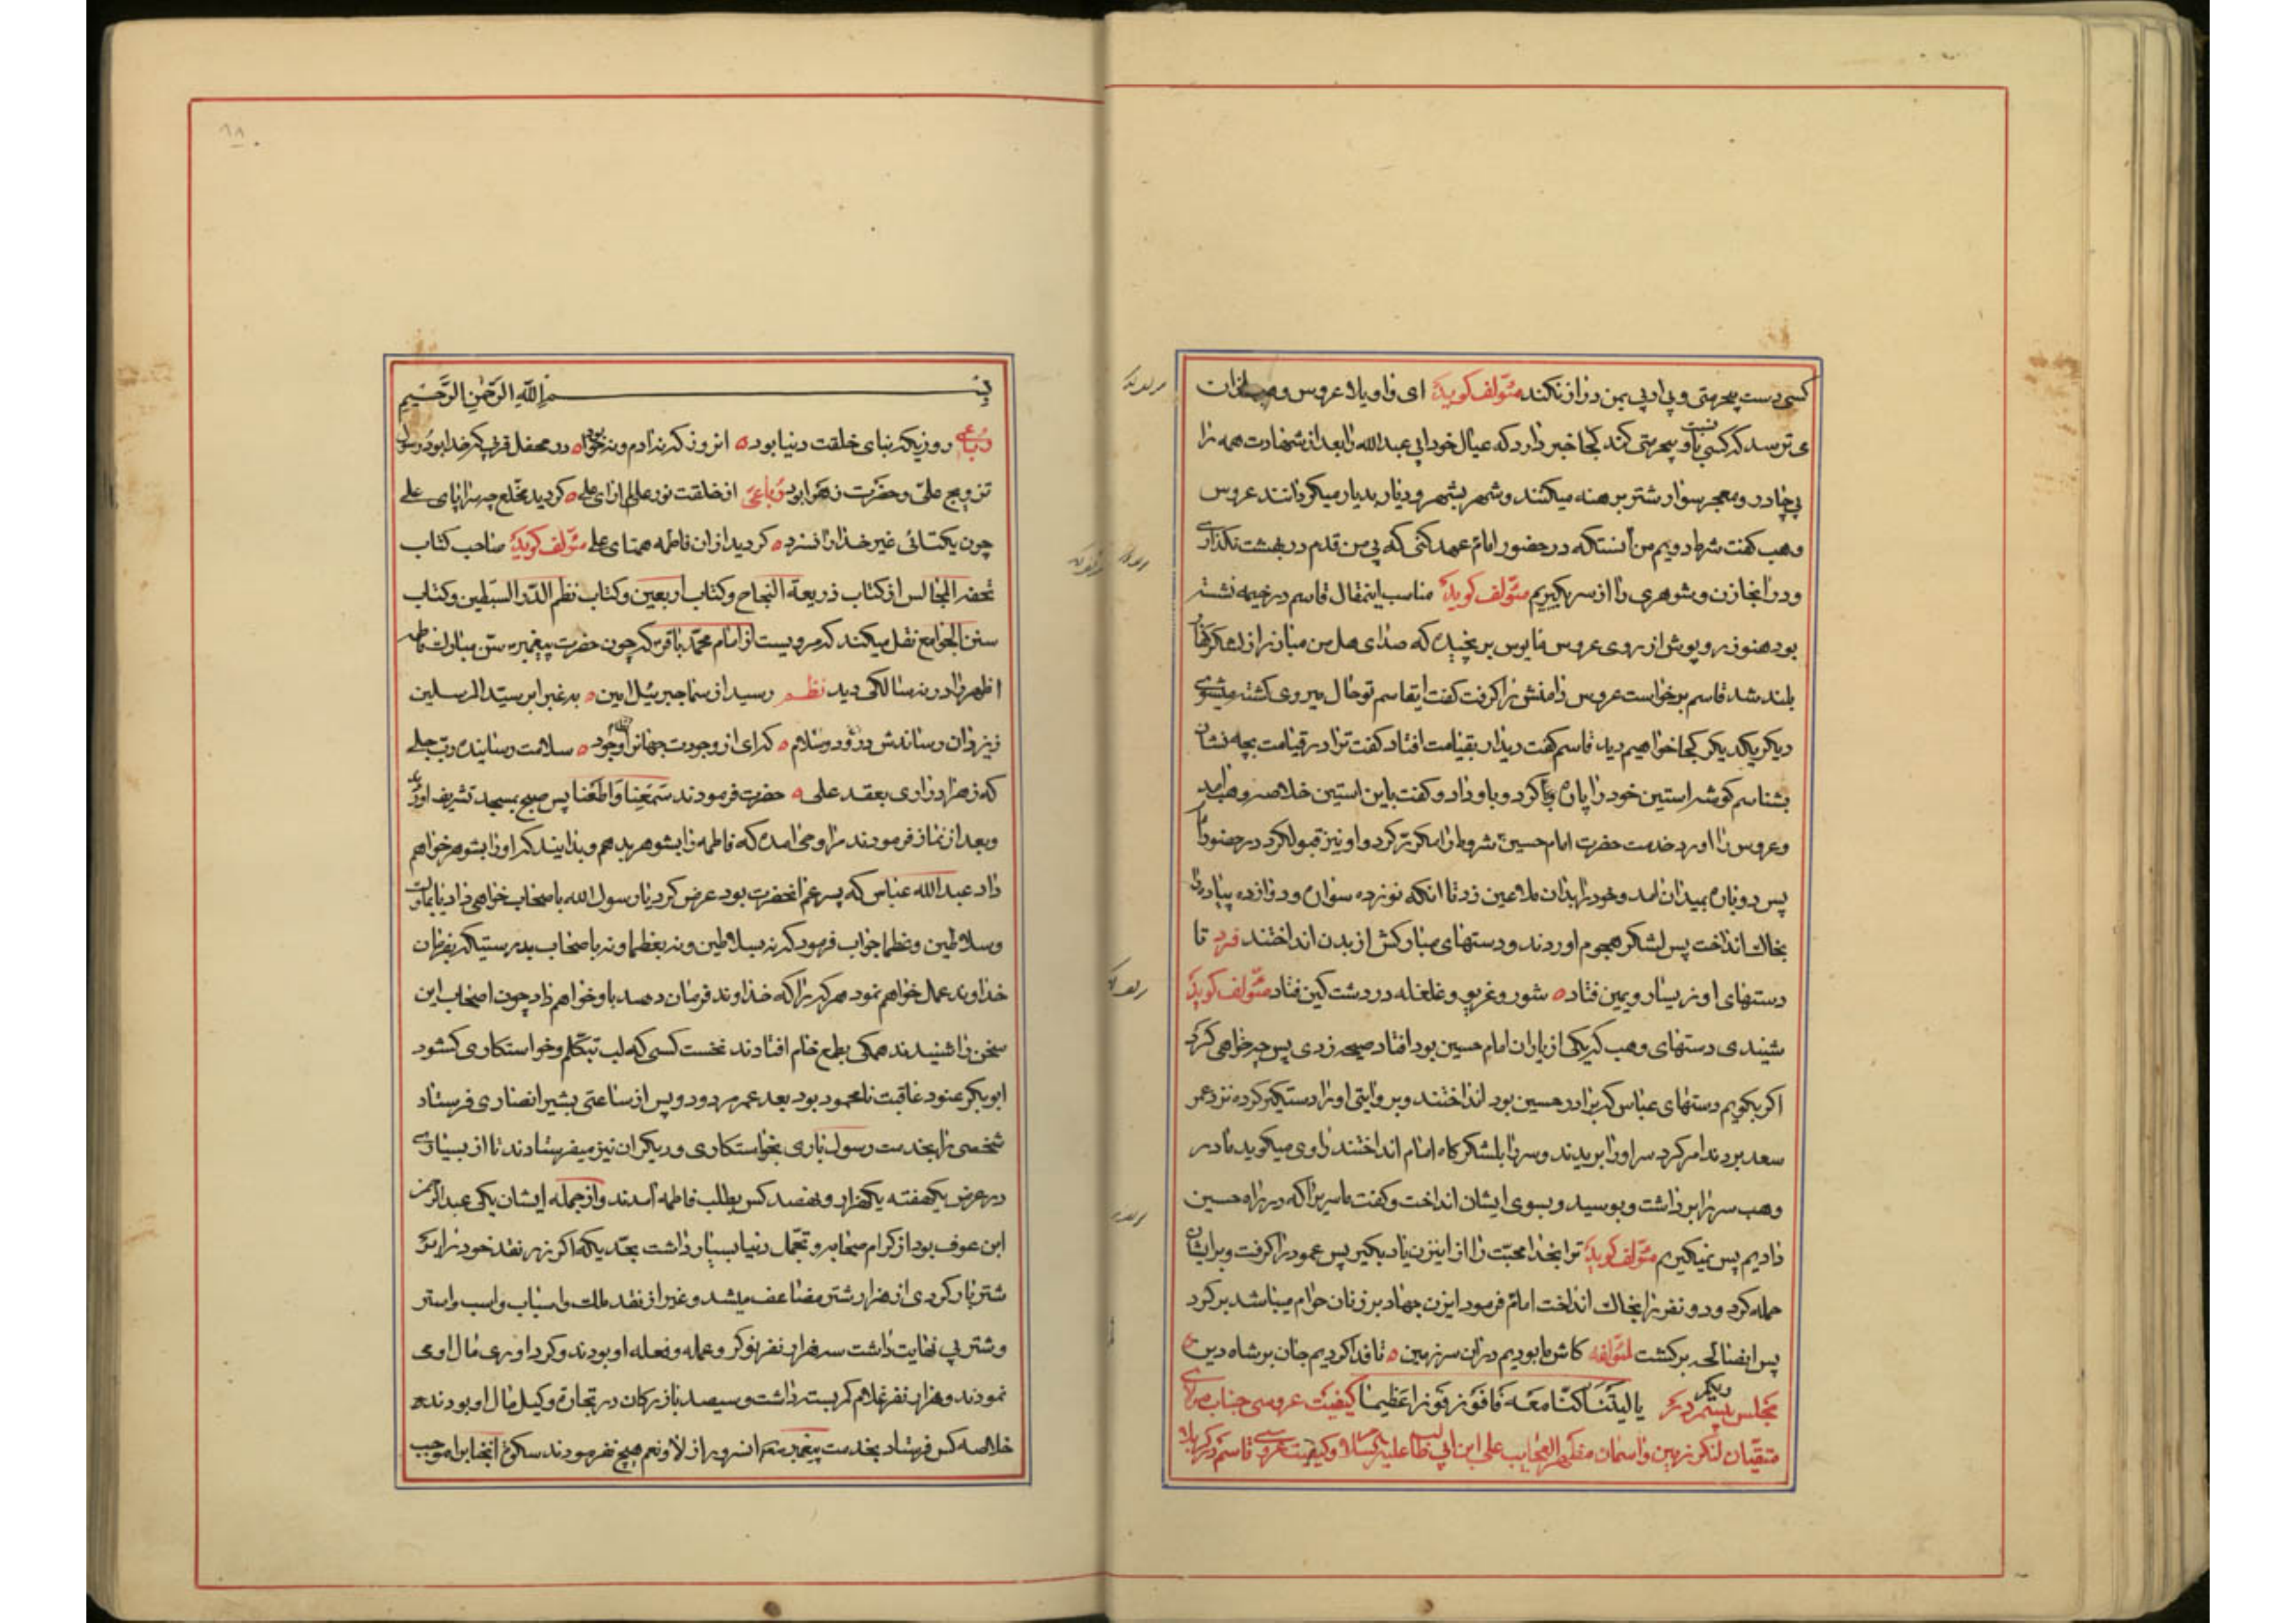 کسی دست بیحرمتی و بی ادبی بمن دراز نکند مئولف کوید ای واویلا عروس وهب از ان
می ترسد که کسی باو بیحرمتی کند کجا خبر دارد که عیال خود ابی عبدالله را بعد از شهادت همه را
بی چادر و معجر سوار شتر برهنه میکنند و شهر بشهر و دیار بدیار میکردانند عروس
وهب کفت شرط دویم من آنستکه در حضور امام عهد کنی که بی من قدم در بهشت نکذاری
و در انجا زن و شوهری را از سر بکیریم مئولف کوید مناسب اینمقال قاسم در خیمه نشسته
بود هنوز روپوش از روی عروس مایوس بر نچیده که صدای هل من مبارز از لشکر کفار
بلند شد قاسم برخواست عروس دامنش را کرفت کفت ایقاسم تو حال میروی کشته میشوی
دیکر یکدیکر کجا خواهیم دید قاسم کفت دیدار بقیامت افتاد کفت ترا در قیامت بچه نشان
بشناسم کوشه استین خود را پاره کرد و باو داد و کفت باین استین خلاصه وهب امد
و عروس را اورد خدمت حضرت امام حسین شروط را مکرر کرد و او نیز قبول کرد در حضور امام
پس دوباره بمیدان امد و خود را بدان ملاعین زد تا انکه نوزده سواره و دوازده پیاده را
بخاک انداخت پس لشکر هجوم اوردند و دستهای مبارکش از بدن انداختند فرد تا
دستهای او ز یسار و یمین فتاد ه شور و غریو و غلغله در دشت کین فتاد مئولف کوید
شیندی دستهای وهب که یکی از یاران امام حسین بود افتاد صیحه زدی پس چه خواهی کرد
اکر بکویم دستهای عباس که برادر حسین بود انداختند و بروایتی او را دستکیر کرده نزد عمر
سعد بردند امر کرد سر او را بریدند و سر را بلشکرکاه امام انداختند راوی میکوید مادر
وهب سر را برداشت و بوسید و بسوی ایشان انداخت و کفت ما سریرا که در راه حسین
دادیم پس نمیکیریم مئولف کوید ترا بخدا محبت را از اینزن یاد بکیر پس عمود را کرفت و برایشان
حمله کرد و دو نفر را بخاک انداخت امام فرمود ایزن جهاد بر زنان حرام میباشد برکرد
پس ایضالحه برکشت لمئولفه کاش ما بودیم در ان سرزمین ه تا فدا کردیم جان بر شاه دین
یا لیتنا کنا معه فافوز فوزا عظیما کیفیت عروسی جناب مولای
متقیان لنکر زمین و اسمان مظهر العجایب علی ابن ابی طالب علیه السلام و کیفیت عروسی قاسم در کربلا
بسم الله الرحمن الرحیم
رباعی روزیکه بنای خلقت دنیا بود ه انروز که نه ادم و نه حوا بود ه در محفل قرب که خدا بود و رسول
تزویج علی و حضرت زهرا بود رباعی از خلقت نور عالم ارای علی ه کردید مخلع چه سراپای علی
چون یکتائی غیر خدا را نسزد ه کردید از ان فاطمه همتای علی مئولف کوید صاحب کتاب
تحفه المجالس از کتاب ذریعة النجاح و کتاب اربعین و کتاب نظم الدرر السبطین و کتاب
سنن الجوامع نقل میکند که مرویست از امام محمد باقر که چون حضرت پیغمبر سن مبارک فاطمه
اطهر را در نه سالکی دید نظم رسید از سما جبرئیل امین ه به غبرا بر سید المرسلین
ز یزدان رساندش درود و سلام ه که ای از وجودت جهانرا وجود ه سلامت رساینده رب جلی
که زهرا در اری بعقد علی ه حضرت فرمودند سمعنا و اطعنا پس صبح بمسجد تشریف اورد
و بعد از نماز فرمودند مرا وحی امده که فاطمه را بشوهر بدهم و بدانید که او را بشوهر خواهم
داد عبدالله عباس که پسرعم انحضرت بود عرض کرد یا رسول الله باصحاب خواهی داد یا بملوک
و سلاطین و عظما جواب فرمود که نه بسلاطین و نه بعظما و نه باصحاب بدرستیکه بفرمان
خداوند عمل خواهم نمود هر کرا که خداوند فرمان دهد باو خواهم داد چون اصحاب این
سخن را شنیدند همکی بطمع خام افتادند نخست کسی که لب بتکلم و خواستکاری کشود
ابوبکر عنود عاقبت نامحمود بود بعد عمر مردود و پس از ساعتی بشیر انصاری فرستاد
شخصی را بخدمت رسول باری بخواستکاری و دیکران نیز میفرستادند تا از بسیاری
در عرض یکهفته یکهزار و هفصد کس بطلب فاطمه آمدند و از جمله ایشان یکی عبدالرحمن
ابن عوف بود از کرام صحابه و تجمل دنیا بسیار داشت بحدیکه اکر زر نقد خود را بر
شتر بار کردی از هزار شتر مضاعف میشد و غیر از نقد ملک و اسباب و اسب و استر
و شتر بی نهایت داشت سه هزار نفر نوکر و عمله و فعله او بودند و کرداوری مال او می
نمودند و هزار نفر غلام کمر بسته داشت و سیصد بازرکان در تجارة وکیل مال او بودند
خلاصه کس فرستاد بخدمت پیغمبر انسرور از لا و نعم هیچ نفرمودند سکوة انجناب